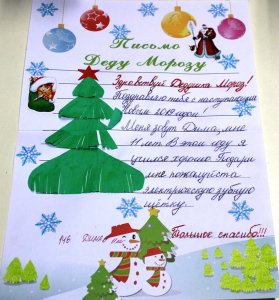 Письмо
Деду Морозу
Здравствуй Дедушка Мороз!
Поздравляю тебя с наступающим
Новым 2019 годом!
Меня зовут Дима, мне
11 лет. В этом году я
учился хорошо. Подари
мне пожалуйста
электрическую зубную
щётку.
Большое спасибо!!!
Дима